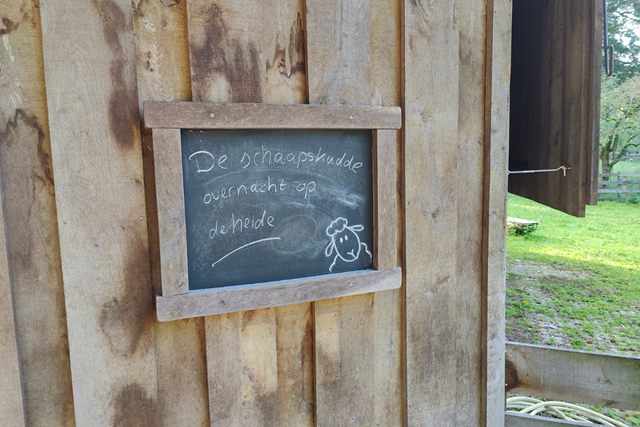 De schaapskudde
overnacht op
de heide